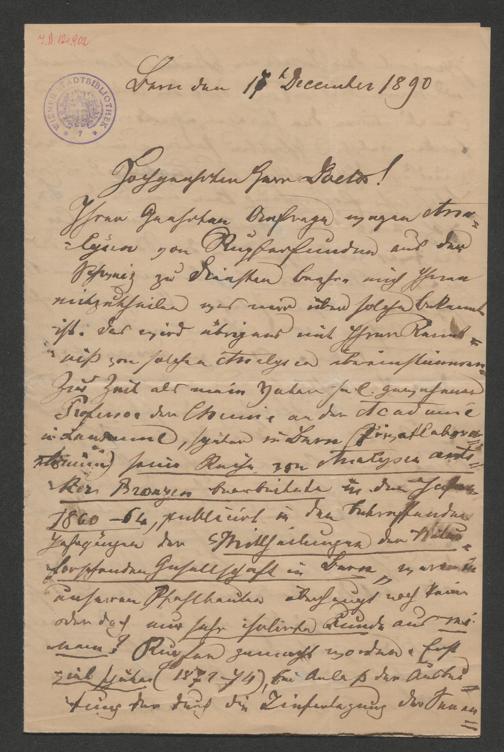 J.N. 129902
WIENER STADTBIBLIOTHEK
Bern den 17 December 1890
Hochgeehrter Herr Doctor!
Ihrer Geehrten Anfrage wegen Ana=
=lysen von Kupferfunden aus der
Schweiz zu Diensten beehre mich Ihnen
mitzutheilen was mir über solche bekannt
ist. Das wird übrigens mit Ihrer Kennt=
=niß von solchen Analysen übereinstimmen.
Zur Zeit als mein Vater sel. gewesener
Professor der Chemie an der Academie
in Lausanne, später in Bern (Privatlabora=
=torium) seine Reihe von Analysen anti=
=ker Bronzen bearbeitete in den Jahren
1860–64, publicirt in den betreffenden
Jahrgängen der Mittheilungen der Natur=
=forschenden Gesellschaft in Bern, waren in
unseren Pfahlbauten überhaupt noch keine
oder doch nur sehr isolirte Funde aus rei=
=nem Kupfer gemacht worden. Erst
viel später (1872–74), bei Anlaß der Ausbeu=
=tung der durch die Tieferlegung der Juran=